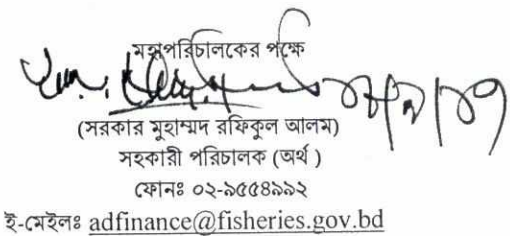 মহাপরিচালকের পক্ষে
(সরকার মুহাম্মদ রফিকুল আলম)
সহকারী পরিচালক (অর্থ )
ফোনঃ ০২-৯৫৫৪৯৯২
ই-মেইলঃ adfinance@fisheries.gov.bd